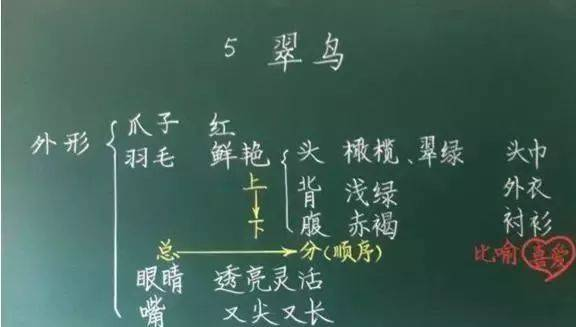 5 翠鸟
爪子 红
外形
羽毛 鲜艳 头 橄榄、翠绿 头巾
上 背 浅绿 外衣
下 腹 赤褐 衬衫
总 分(顺序) 比喻 喜爱
眼睛 透亮灵活
嘴 又尖又长